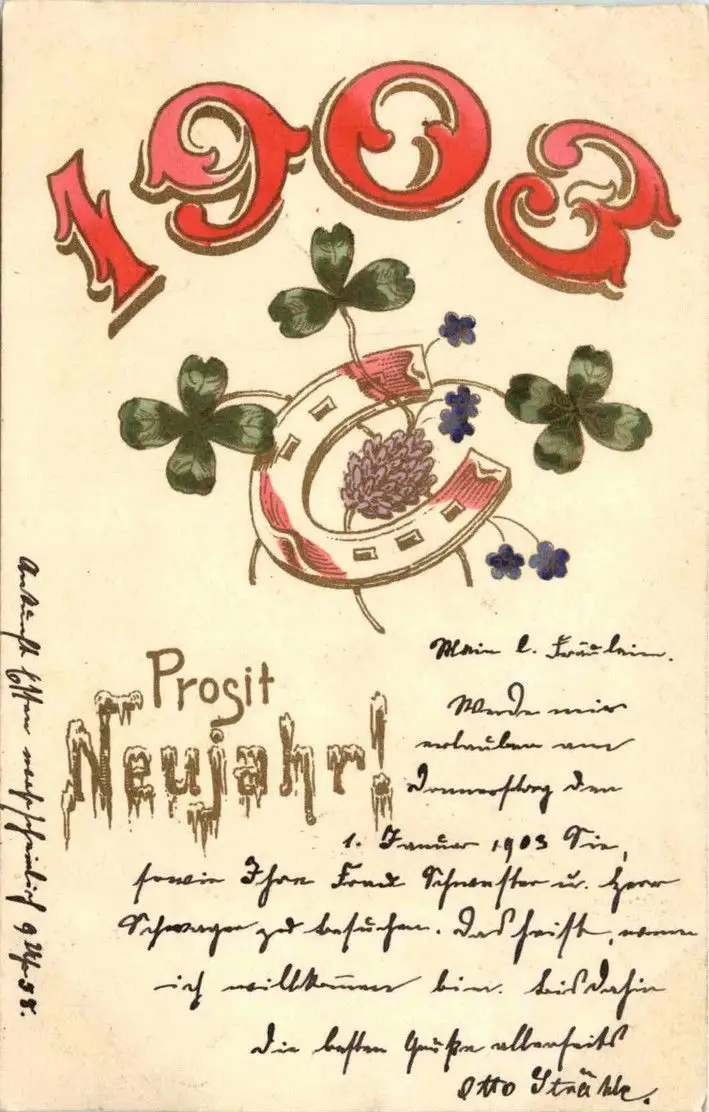 1903
Prosit
Neujahr!
Mein l. Fräulein.
Werde mir
erlauben am
Donnerstag den
1. Januar 1903 Sie,
sowie Ihre Frau Schwester u. Herr
Schwager zu besuchen. Das heißt, wenn
ich willkommen bin. bis dahin
die besten Grüße allerseits
Otto Strähle.
Ankunft wahrscheinlich 9 Uhr 58.